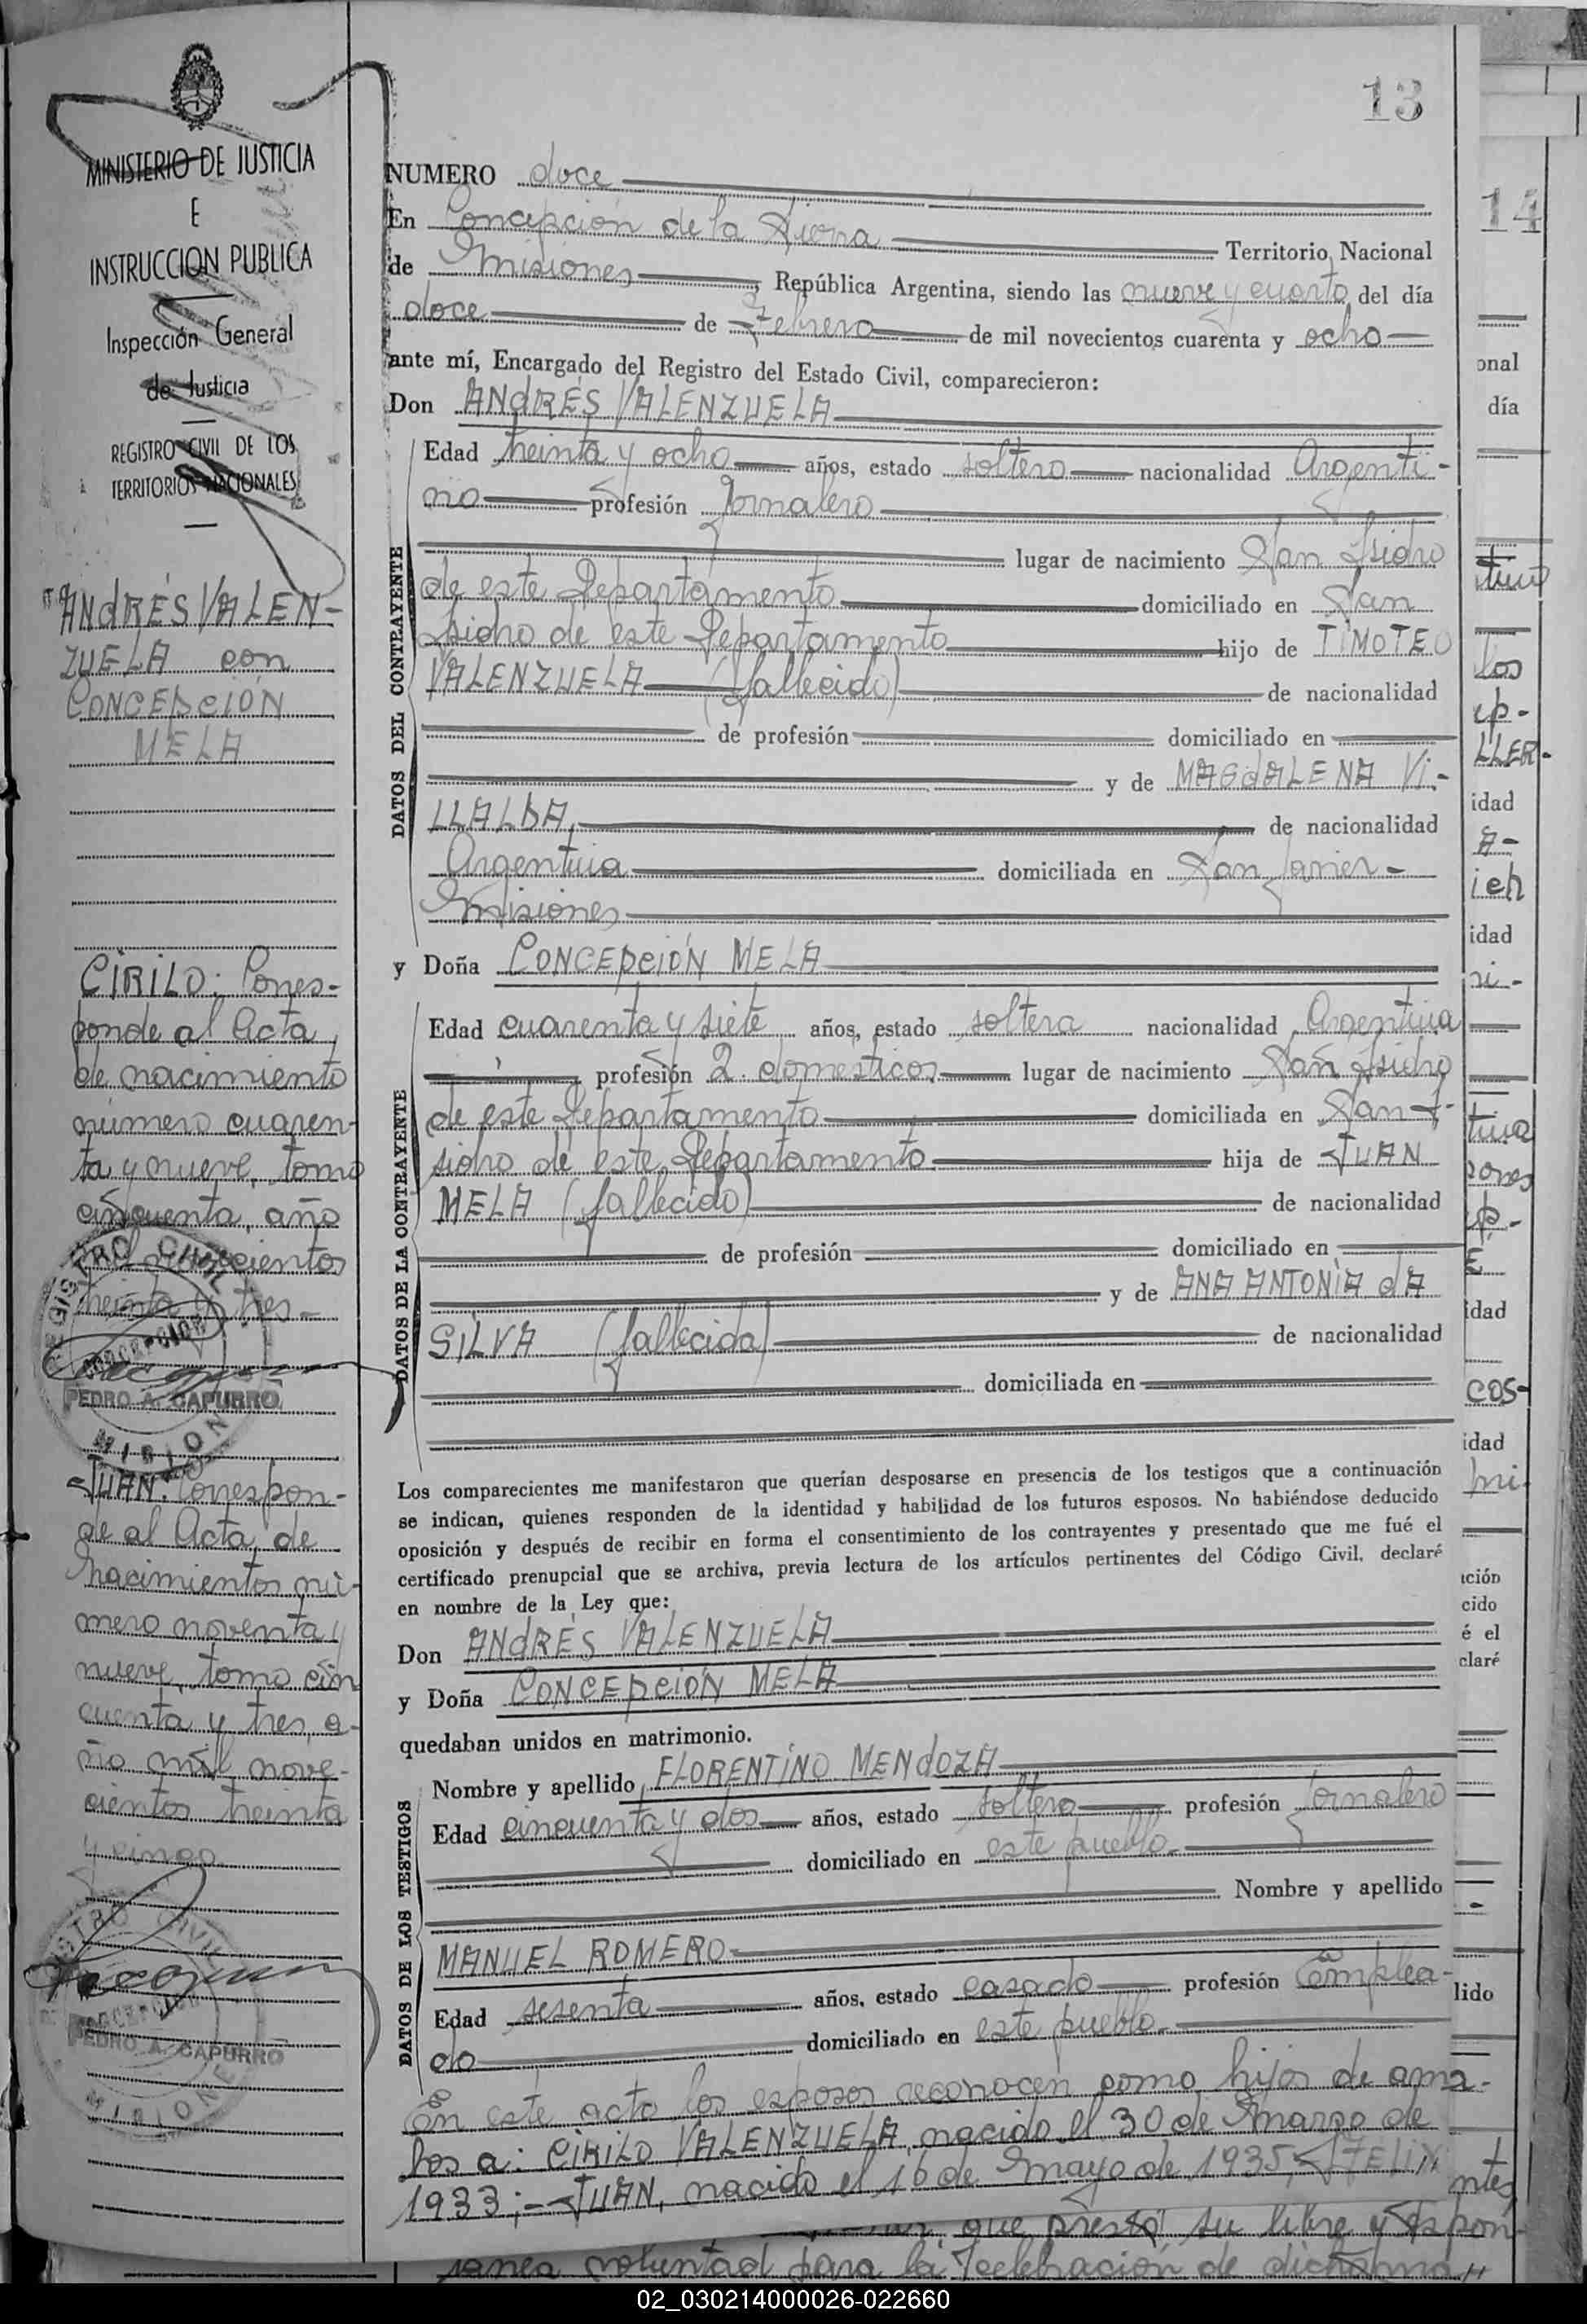 13
MINISTERIO DE JUSTICIA
E
INSTRUCCION PUBLICA
Inspección General
de Justicia
REGISTRO CIVIL DE LOS
TERRITORIOS NACIONALES
ANdRÉS VALEN-
ZUELA con
CONCEPCIÓN
MELA
CIRILO: Corres-
ponde al Acta
de nacimiento
número cuaren-
ta y nueve, tomo
cincuenta, año
mil novecientos
treinta y tres-
REGISTRO CIVIL
CONCEPCION
PEDRO A. CAPURRO
MISIONES
JUAN: Correspon-
de al Acta de
nacimientos nú-
mero noventa y
nueve, tomo cin
cuenta y tres, a-
ño mil nove-
cientos treinta
y cinco
REGISTRO CIVIL
CONCEPCION
PEDRO A. CAPURRO
MISIONES
NUMERO doce
En Concepción de la Sierra Territorio Nacional
de Misiones, República Argentina, siendo las nueve y cuarto del día
doce de Febrero de mil novecientos cuarenta y ocho
ante mí, Encargado del Registro del Estado Civil, comparecieron:
Don ANdRÉS VALENZUELA
DATOS DEL CONTRAYENTE
Edad treinta y ocho años, estado soltero nacionalidad Argenti-
no profesión Jornalero
lugar de nacimiento San Isidro
de este Departamento domiciliado en San
Isidro de este Departamento hijo de TIMOTEO
VALENZUELA (fallecido) de nacionalidad
de profesión domiciliado en
y de MAGdALENA VI-
LLALBA, de nacionalidad
Argentina domiciliada en San Javier-
Misiones
y Doña CONCEPCIÓN MELA
DATOS DE LA CONTRAYENTE
Edad cuarenta y siete años, estado soltera nacionalidad Argentina
profesión Q. domesticos lugar de nacimiento San Isidro
de este Departamento domiciliada en San I-
sidro de este Departamento hija de JUAN
MELA (fallecido) de nacionalidad
de profesión domiciliado en
y de ANA ANTONIA dA
SILVA (fallecida) de nacionalidad
domiciliada en
Los comparecientes me manifestaron que querían desposarse en presencia de los testigos que a continuación
se indican, quienes responden de la identidad y habilidad de los futuros esposos. No habiéndose deducido
oposición y después de recibir en forma el consentimiento de los contrayentes y presentado que me fué el
certificado prenupcial que se archiva, previa lectura de los artículos pertinentes del Código Civil, declaré
en nombre de la Ley que:
Don ANdRÉS VALENZUELA
y Doña CONCEPCIÓN MELA
quedaban unidos en matrimonio.
DATOS DE LOS TESTIGOS
Nombre y apellido FLORENTINO MENdOZA
Edad cincuenta y dos años, estado soltero profesión Jornalero
domiciliado en este pueblo.
Nombre y apellido
MANUEL ROMERO
Edad sesenta años, estado casado profesión Emplea-
do domiciliado en este pueblo.
En este acto los esposos reconocen como hijos de am-
bos a: CIRILO VALENZUELA, nacido el 30 de Marzo de
1933;- JUAN, nacido el 16 de Mayo de 1935,- FELIX
que presta su libre y espon-
tanea voluntad para la celebración de dicho
14
onal
día
los
ep-
LLER-
idad
A-
ich
idad
ri-
tina
ep-
E
idad
cos-
idad
ción
cido
é el
claré
lido
ntes,
02_030214000026-022660